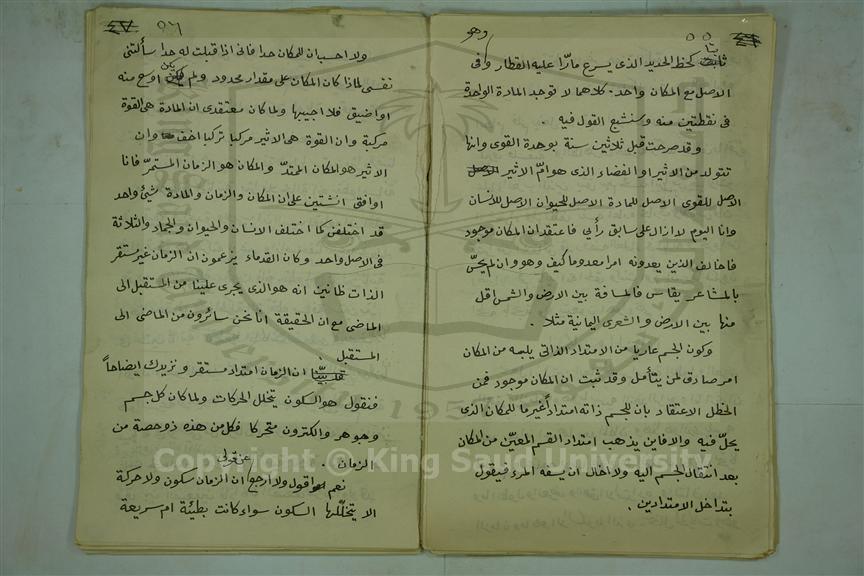 ٥٥
وهو
ثابت كخط الحديد الذي يسرع مارّا عليه القطار وكفى
الاصل مع المكان واحد. كلاهما لا توجد المادة الواحدة
في نقطتين منه وسنشبع القول فيه .
وقد صرحت قبل ثلاثين سنة بوحدة القوى وانها
تتولد من الاثير او الفضاء الذي هو امّ الاثير
الاصل للقوى الاصل للمادة الاصل للحيوان الاصل للانسان
وانا اليوم لا ازال على سابق رأيي فاعتقد ان المكان موجود
فاخالف الذين يعدونه امرا معدوما كيف وهو وان لم يحسّ
بالمشاعر يقاس فالمسافة بين الارض والشمس اقل
منها بين الارض والشعرى اليمانية مثلا .
وكون الجسم عاريا من الامتداد الذاتي يلبسه من المكان
امر صادق لمن يتأمل وقد ثبت ان المكان موجود فمن
الخطل الاعتقاد بان للجسم ذاته امتداداً غير ما للمكان الذي
يحلّ فيه والا فاين يذهب امتداد القسم المعيّن من المكان
بعد انتقال الجسم اليه ولا اخال ان يسفه المرء فيقول
بتداخل الامتدادين .
٥٦
ولا احسب ان للمكان حدا فاني اذا قبلت له حدا سألتني
نفسي لماذا كان المكان على مقدار محدود ولم يكن اوسع منه
او اضيق فلا اجيبها ولما كان معتقدي ان المادة هي القوة
مركبة وان القوة هي الاثير مركبا تركبا اخف وان
الاثير هو المكان الممتدّ والمكان هو الزمان المستمرّ فانا
اوافق انشتين على ان المكان والزمان والمادة شيئ واحد
قد اختلفن كما اختلف الانسان والحيوان والجماد والثلاثة
في الاصل واحد وكان القدماء يزعمون ان الزمان غير مستقر
الذات ظانين انه هو الذي يجري علينا من المستقبل الى
الماضي مع ان الحقيقة انا نحن سائرون من الماضي الى
المستقبل .
قد بيّنا ان الزمان امتداد مستقر ونزيدك ايضاحاً
فنقول هو السكون يتخلل الحركات ولما كان كل جسم
وجوهر والكترون متحركا فكل من هذه ذو حصة من
الزمان .
نعم اقول ولا ارجع عن قولي ان الزمان سكون ولا حركة
الا يتخللها السكون سواء كانت بطيئة ام سريعة
Copyright © King Saud University